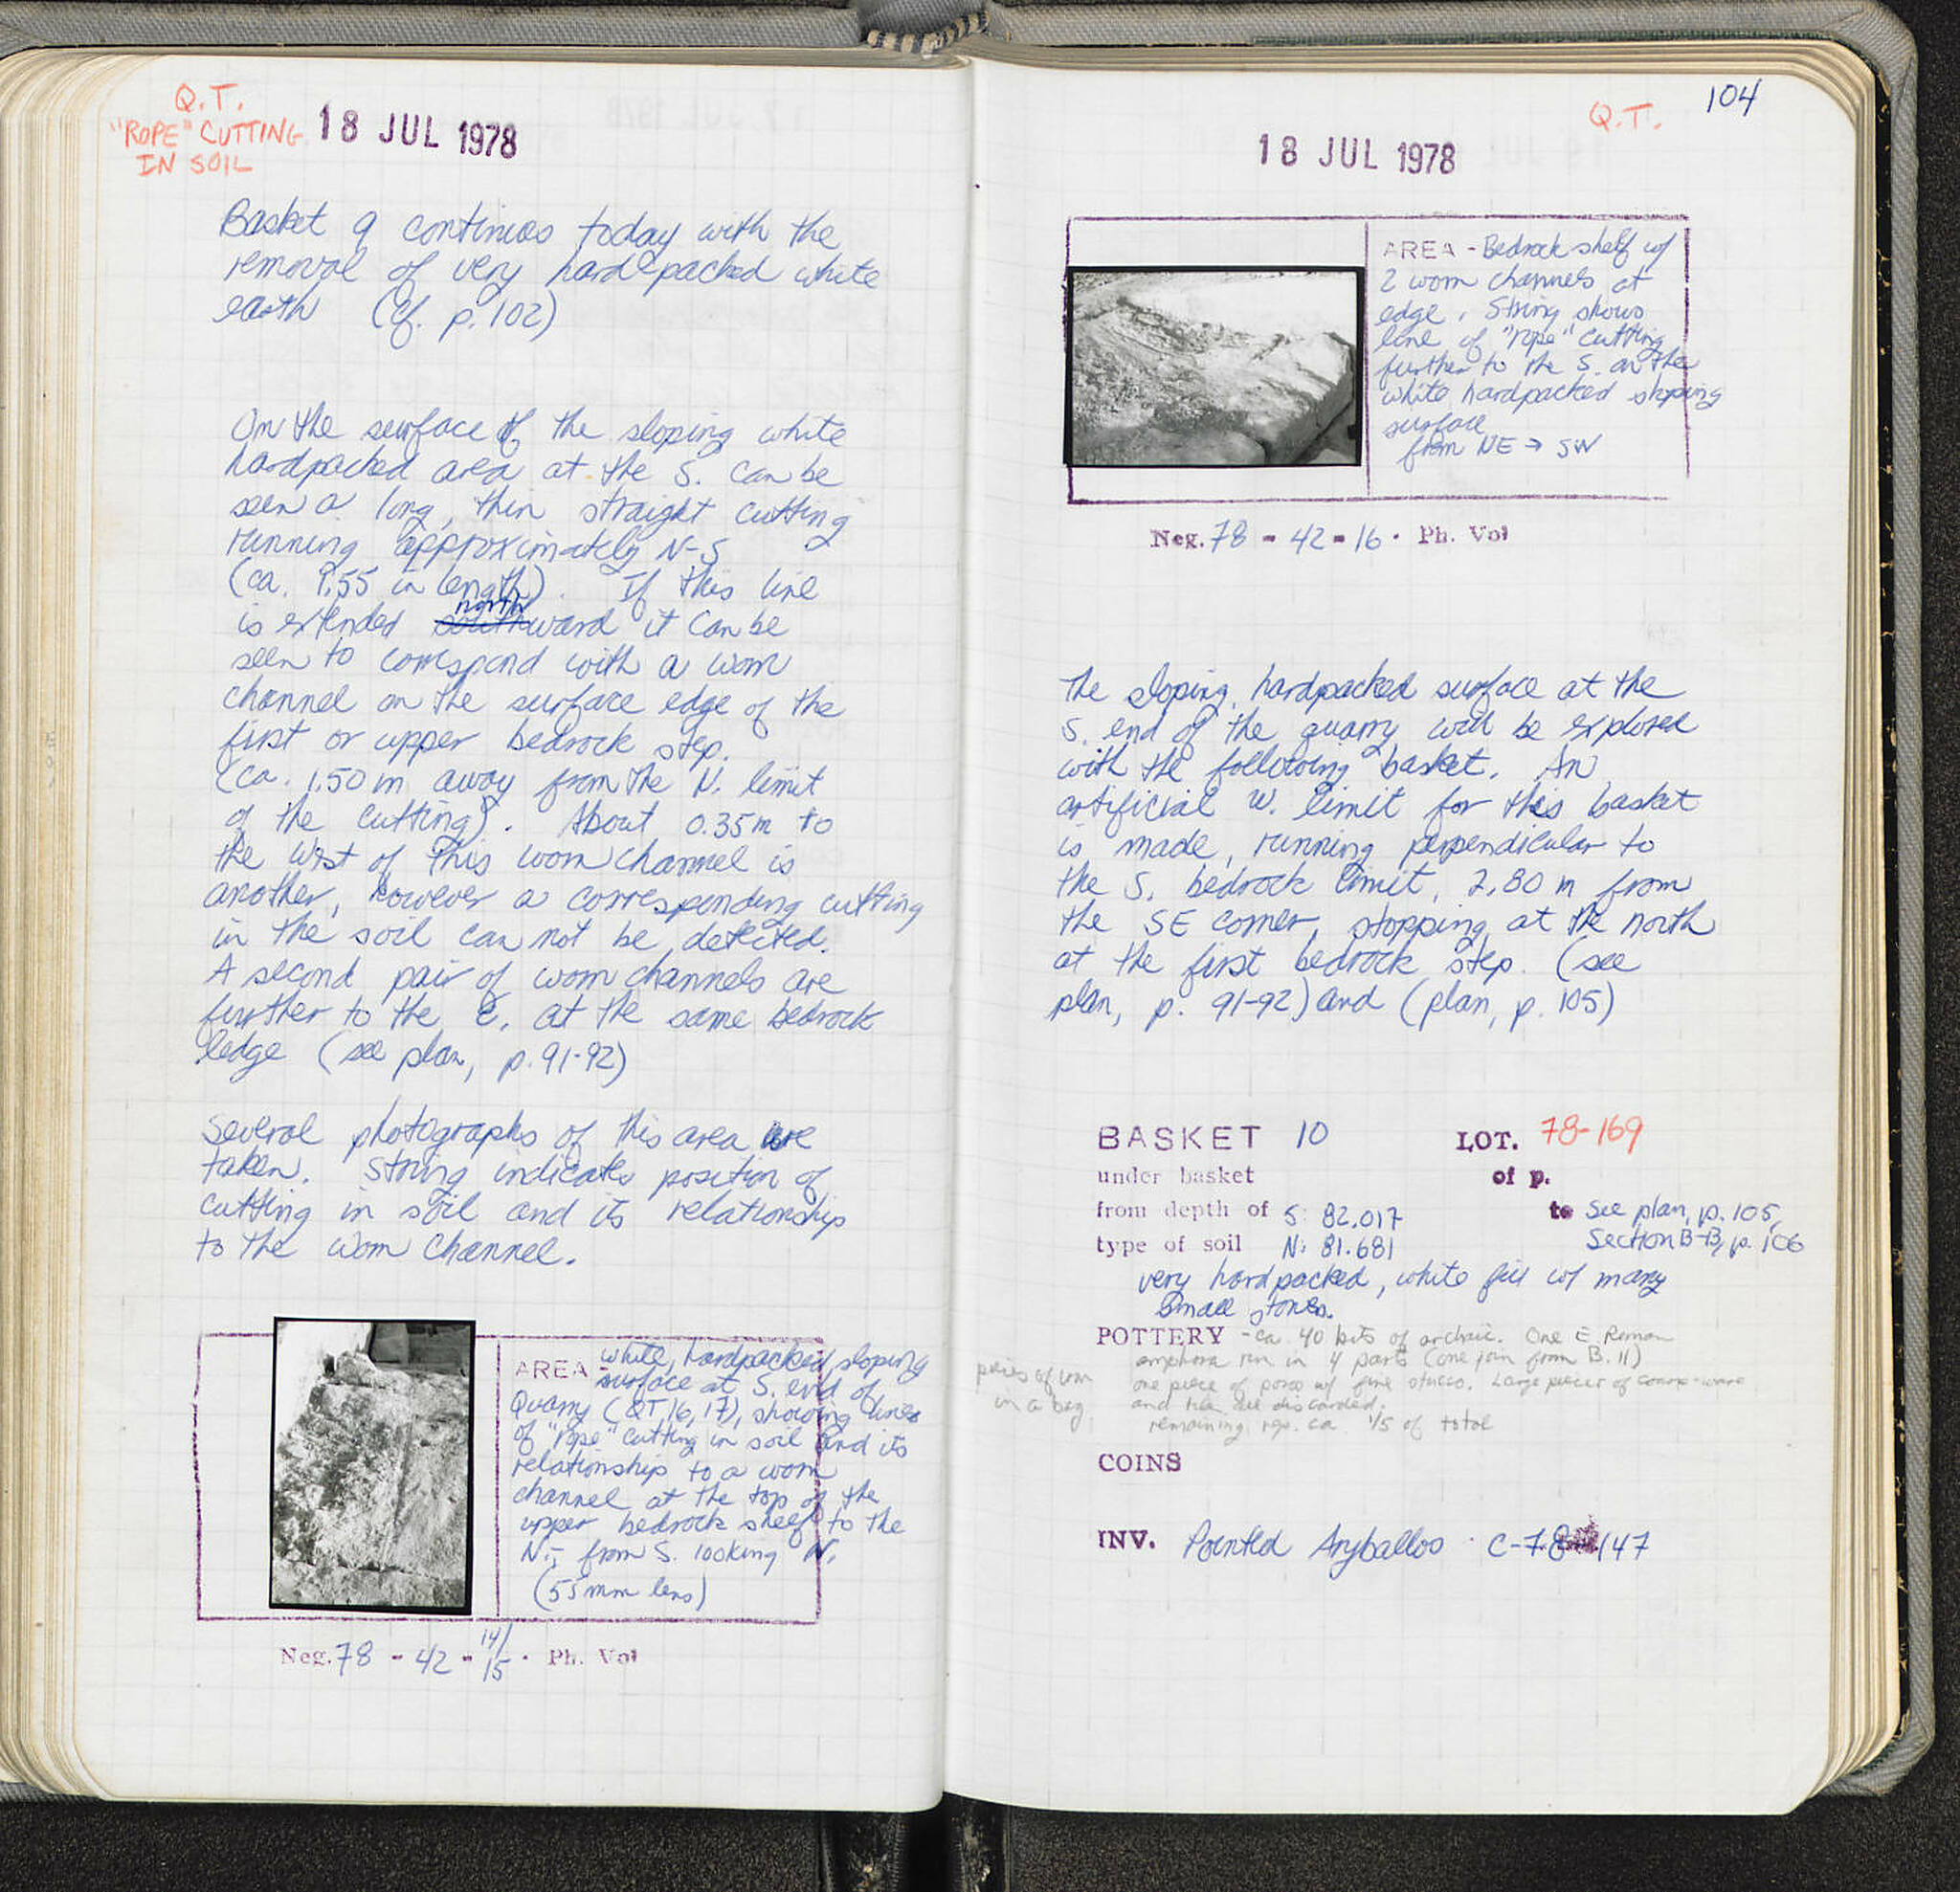 Q.T.
"ROPE" CUTTING
IN SOIL
18 JUL 1978
Basket 9 continues today with the
removal of very hard packed white
earth (cf. p. 102)
On the surface of the sloping white
hardpacked area at the S. can be
seen a long, thin straight cutting
running approximately N-S
(ca. 1.55 in length). If this line
is extended northward it can be
seen to correspond with a worn
channel on the surface edge of the
first or upper bedrock step.
(ca. 1.50 m away from the N. limit
of the cutting). About 0.35 m to
the west of this worn channel is
another, however a corresponding cutting
in the soil can not be detected.
A second pair of worn channels are
further to the E. at the same bedrock
ledge (see plan, p. 91-92)
Several photographs of this area are
taken. String indicates position of
cutting in soil and its relationship
to the worn channel.
AREA - white, hardpacked, sloping
surface at S. end of
Quarry (QT, 16, 17), showing lines
of "rope" cutting in soil and its
relationship to a worn
channel at the top of the
upper bedrock shelf to the
N.; from S. looking N.
(55 mm lens)
Neg. 78 - 42 - 14/15 . Ph. Vol
104
Q.T.
18 JUL 1978
AREA - Bedrock shelf w/
2 worn channels at
edge. String shows
line of "rope" cutting
further to the S. on the
white hardpacked sloping
surface
from NE → SW
Neg. 78 - 42 - 16 . Ph. Vol
The sloping, hardpacked surface at the
S. end of the quarry will be explored
with the following basket. An
artificial W. limit for this basket
is made, running perpendicular to
the S. bedrock limit, 2.80 m from
the SE corner, stopping at the north
at the first bedrock step. (see
plan, p. 91-92) and (plan, p. 105)
BASKET 10 LOT. 78-169
under basket of p.
from depth of S: 82.017 to see plan, p. 105,
type of soil N: 81.681 Section B-B, p. 106
very hardpacked, white fill w/ many
small stones.
POTTERY - ca. 40 bits of archaic. One E. Roman
amphora rim in 4 parts (one join from B. 11)
one piece of poros w/ fine stucco. Large pieces of coarse-ware
and tile all discarded.
remaining rep. ca 1/5 of total
pieces of
in a bag
COINS
INV. Pointed Aryballos C-78-147